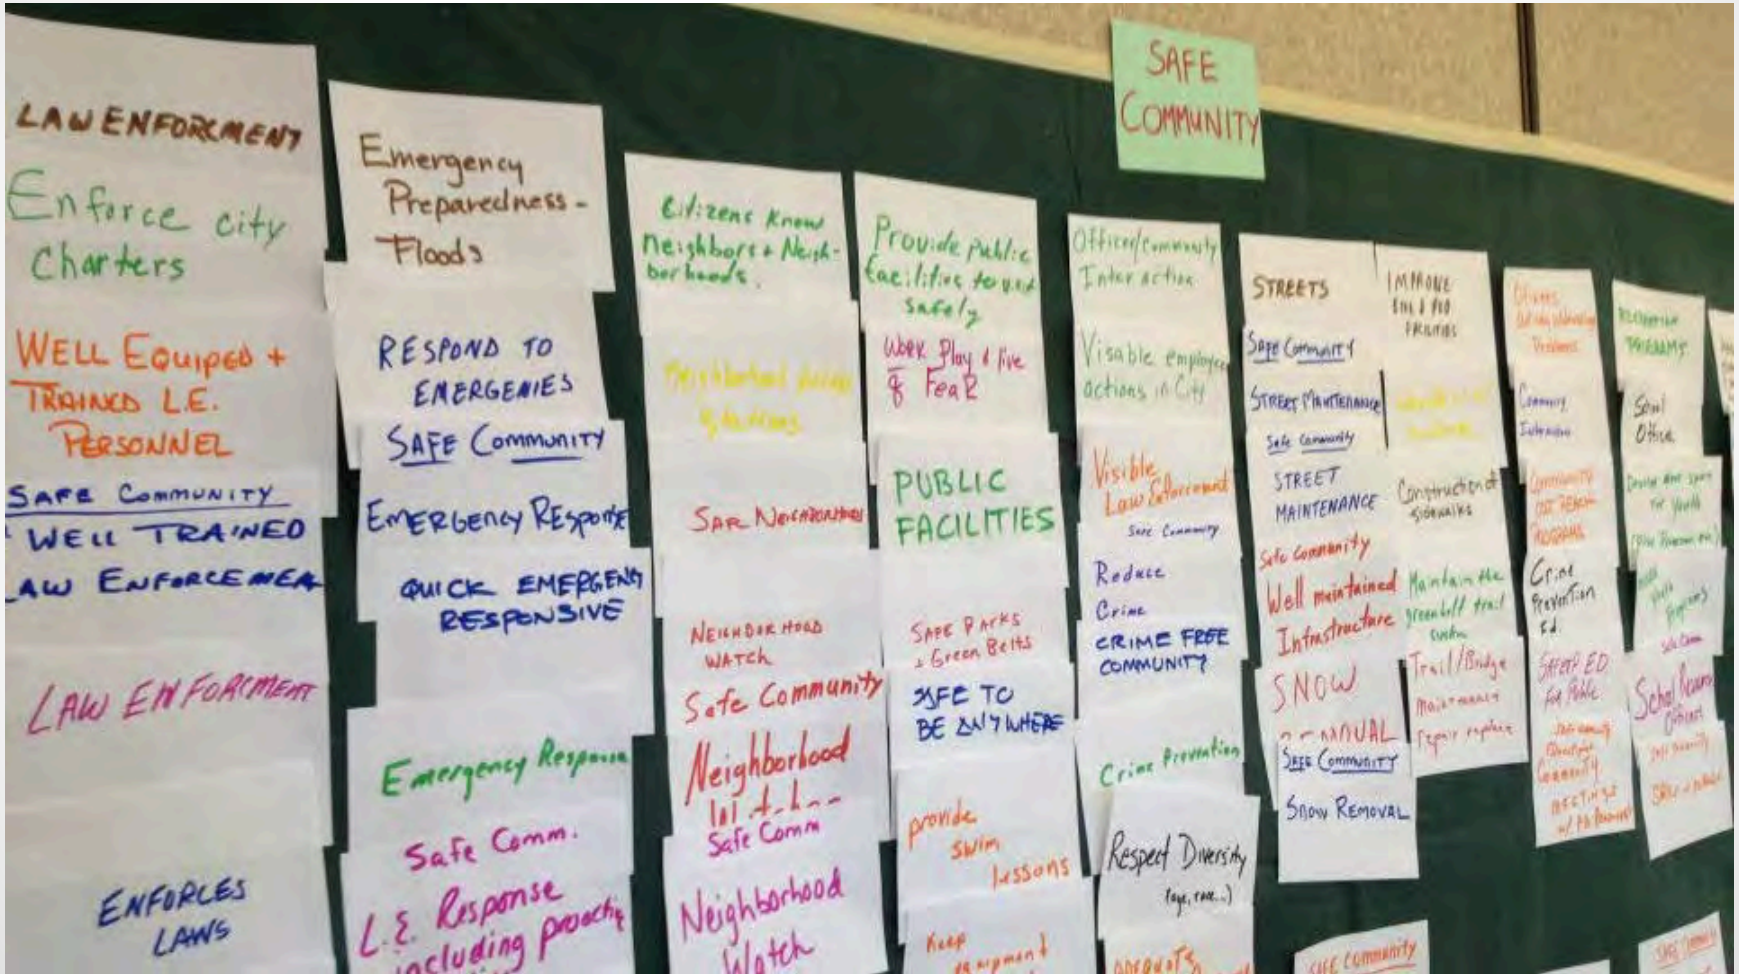 SAFE
COMMUNITY
LAW ENFORCMENT
Enforce city
Charters
WELL EQUIPED +
TRAINED L.E.
PERSONNEL
SAFE COMMUNITY
WELL TRAINED
LAW ENFORCEMEN
LAW ENFORCMENT
ENFORCES
LAWS
Emergency
Preparedness -
Floods
RESPOND TO
EMERGENIES
SAFE COMMUNITY
EMERGENCY RESPONSE
QUICK EMERGENCY
RESPONSIVE
Emergency Response
Safe Comm.
L.E. Response
including proactiv
Citizens Know
Neighbors + Neigh-
borhoods.
Neighborhood
SAFE NEIGHBORHOODS
NEIGHBORHOOD
WATCH
Safe Community
Neighborhood
Safe Comm
Neighborhood
Watch
Provide public
facilities to visit
safely
Work Play & live
Fear
PUBLIC
FACILITIES
SAFE PARKS
+ Green Belts
SAFE TO
BE ANYWHERE
provide
swim
lessons
Keep
equipment
Officer/community
Interaction
Visable employee
actions in City
Visible
Law Enforcement
Safe Community
Reduce
Crime
CRIME FREE
COMMUNITY
Crime Prevention
Respect Diversity
(age, race...)
ADEQUATE
STREETS
SAFE COMMUNITY
STREET MAINTENANCE
Safe Community
STREET
MAINTENANCE
Safe Community
Well maintained
Infrastructure
SNOW
SAFE COMMUNITY
SNOW REMOVAL
SAFE COMMUNITY
IMPROVE
BIKE & PED
FACILITIES
Construction of
sidewalks
Maintain the
greenbelt trail
system
Trail/Bridge
Maintenance
repair replace
Problems
Community
COMMUNITY
OUT REACH
PROGRAMS
Crime
Prevention
Ed.
SAFETY ED
For Public
Community
MEETINGS
RECREATION
PROGRAMS
School
Office
For Youth
Youth
Programs
Safe Comm
School Resource
Officers
SAFE COMMUNITY